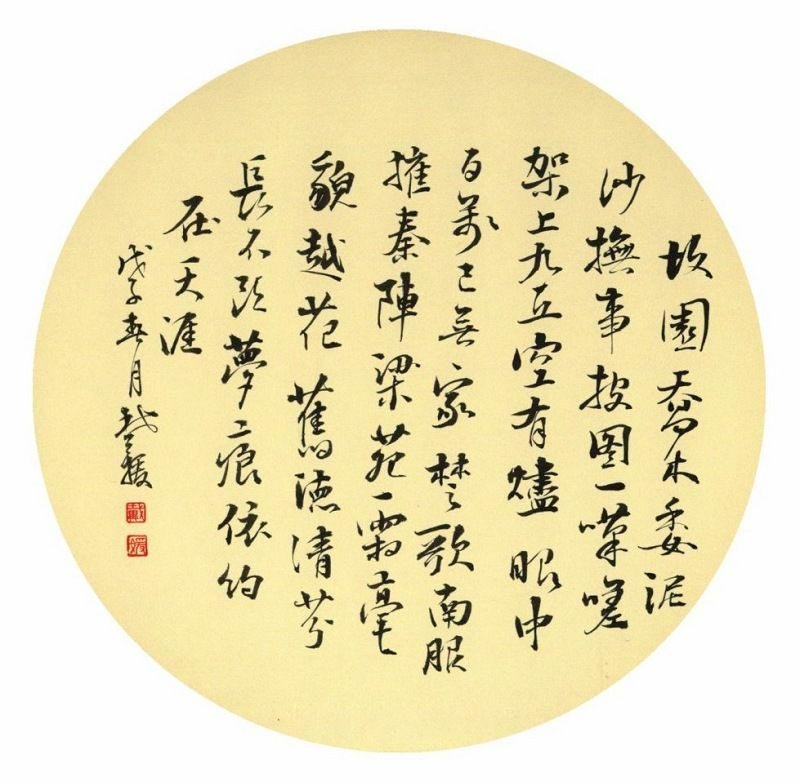 故園喬木委泥
沙撫事披圖一嘆嗟
架上九丘空有燼眼中
百萬已無家楚歌南服
摧秦陣梁苑霜毫
貌越花舊德清芬
長不改夢痕依約
在天涯
戊子春月